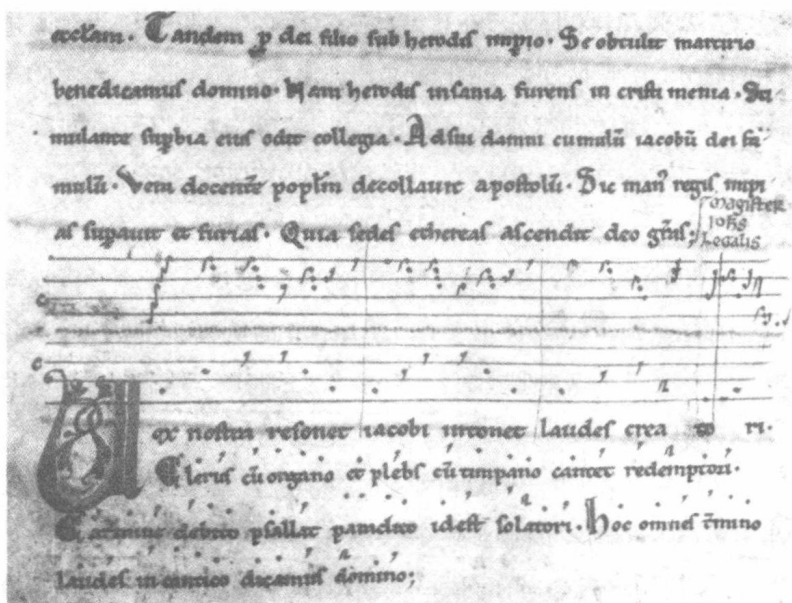 eccl̃am. Tandem ꝑ dei filio sub herodis imꝑio. Se obtulit martirio
benedicamus domino. Nam herodis insania furens in cristi menia. Sti
mulante suꝑbia eius odit collegia. Ad sui damni cumulũ iacobũ dei fa
mulũ. Vera docentẽ popl̃m decollauit apostolũ. Sic man᷒ regis impi
as suꝑauit et furias. Quia sedes ethereas ascendit deo gr̃as;
magister
ioh̃s
Legalis
c
c
Vox nostra resonet iacobi intonet laudes crea to ri.
Clerus cũ organo et plebs cũ timpano cantet redemptori.
Carmine debito psallat paraclito id est solatori. Hoc omnes t̃mino
laudes in cantico dicamus domino;